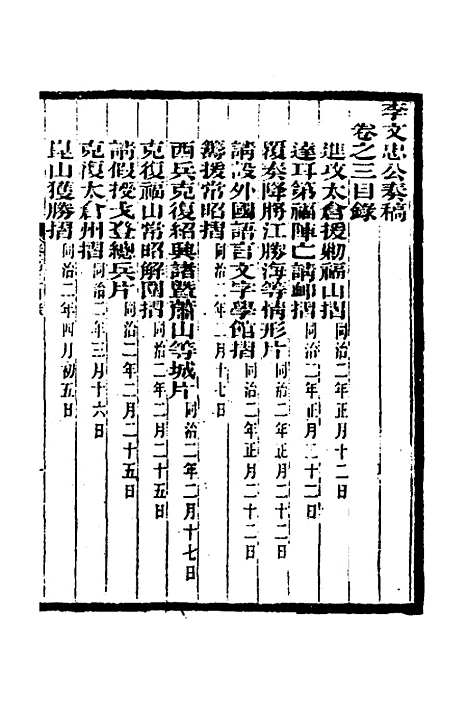 李文忠公奏稿
卷之三目錄
進攻太倉援勦福山摺 同治二年正月十二日
達耳第福陣亡請卹摺 同治二年正月二十二日
覆奏降將江勝海等情形片 同治二年正月二十二日
請設外國語言文字學館摺 同治二年正月二十二日
籌援常昭摺 同治二年二月十七日
西兵克復紹興諸暨蕭山等城片 同治二年二月十七日
克復福山常昭解圍摺 同治二年二月二十五日
請假授戈登總兵片 同治二年二月二十五日
克復太倉州摺 同治二年三月十六日
崑山獲勝摺 同治二年四月初五日